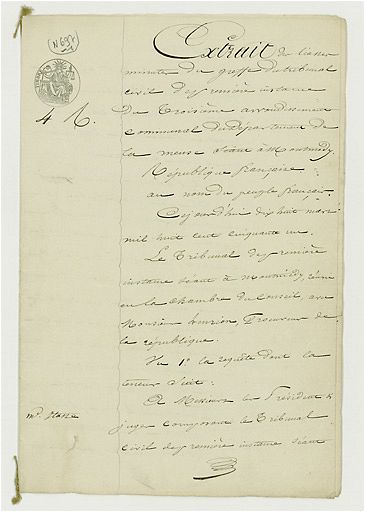 N 697
Extrait des
minutes du greffe du tribunal
civil de première instance
du Troisième arrondissement
communal du département de
la meuse séant à Montmédy.
4 R.
République française
au nom du peuple français.
Cejourd'hui dix huit mars
mil huit cent cinquante un.
Le Tribunal de première
instance séant à Montmédy, réuni
en la chambre du Conseil, avec
Monsieur Procureur de
la république.
Vu 1° la requête dont la
teneur suit:
A Messieurs les Président &
juges composant le Tribunal
civil de première instance séant